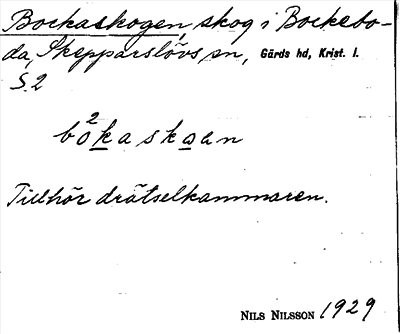 Bockaskogen, skog i Bockebo-
da, Skepparslövs sn, Gärds hd, Krist. l.
S.2
bo²kaskoan
Tillhör drätselkammaren.
NILS NILSSON 1929